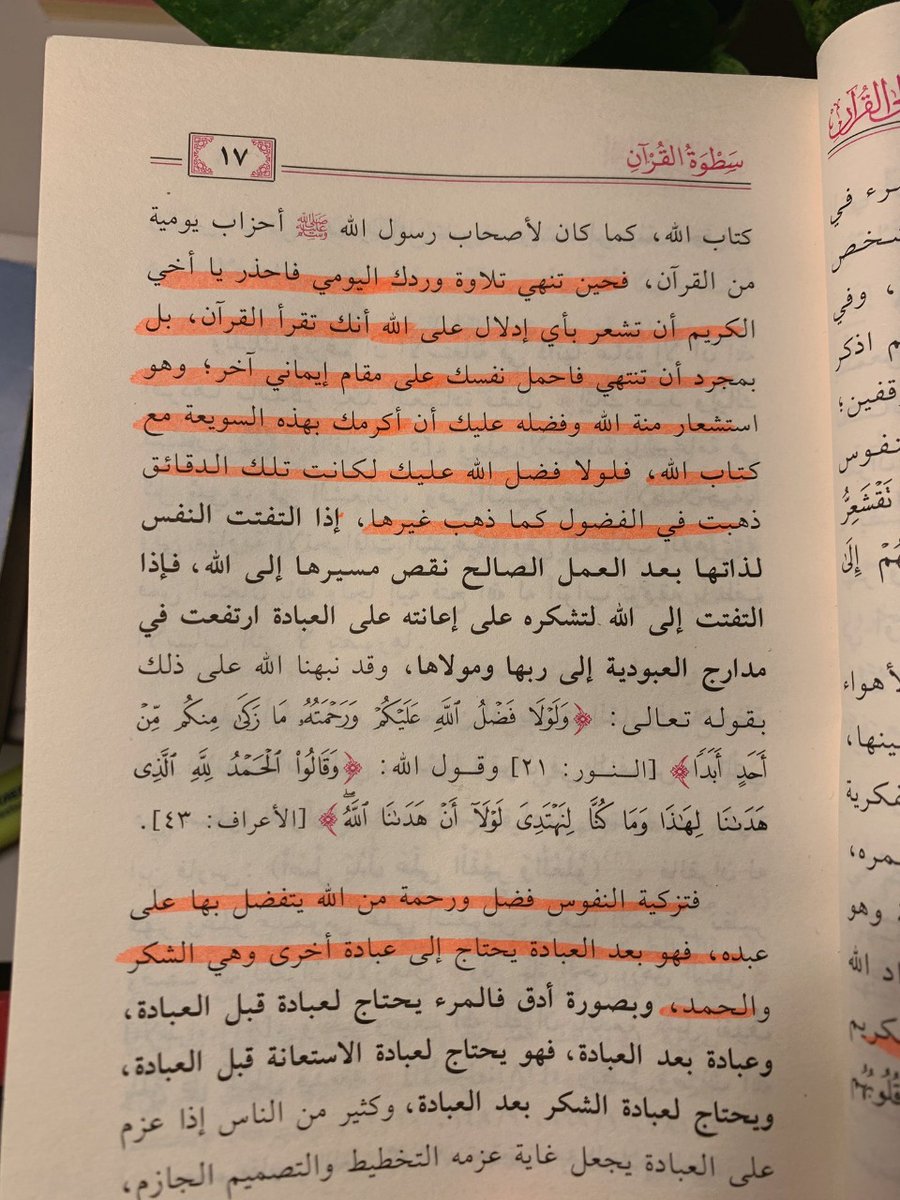 سَطْوَةُ القُرْآنِ
١٧
كتاب الله، كما كان لأصحاب رسول الله ﷺ أحزاب يومية
من القرآن، فحين تنهي تلاوة وردك اليومي فاحذر يا أخي
الكريم أن تشعر بأي إدلال على الله أنك تقرأ القرآن، بل
بمجرد أن تنتهي فاحمل نفسك على مقام إيماني آخر؛ وهو
استشعار منة الله وفضله عليك أن أكرمك بهذه السويعة مع
كتاب الله، فلولا فضل الله عليك لكانت تلك الدقائق
ذهبت في الفضول كما ذهب غيرها، إذا التفتت النفس
لذاتها بعد العمل الصالح نقص مسيرها إلى الله، فإذا
التفتت إلى الله لتشكره على إعانته على العبادة ارتفعت في
مدارج العبودية إلى ربها ومولاها، وقد نبهنا الله على ذلك
بقوله تعالى: ﴿وَلَوْلَا فَضْلُ ٱللَّهِ عَلَيْكُمْ وَرَحْمَتُهُۥ مَا زَكَىٰ مِنكُم مِّنْ
أَحَدٍ أَبَدًا﴾ [النور: ٢١] وقول الله: ﴿وَقَالُوا۟ ٱلْحَمْدُ لِلَّهِ ٱلَّذِى
هَدَىٰنَا لِهَٰذَا وَمَا كُنَّا لِنَهْتَدِىَ لَوْلَآ أَنْ هَدَىٰنَا ٱللَّهُۖ﴾ [الأعراف: ٤٣].
فتزكية النفوس فضل ورحمة من الله يتفضل بها على
عبده، فهو بعد العبادة يحتاج إلى عبادة أخرى وهي الشكر
والحمد، وبصورة أدق فالمرء يحتاج لعبادة قبل العبادة،
وعبادة بعد العبادة، فهو يحتاج لعبادة الاستعانة قبل العبادة،
ويحتاج لعبادة الشكر بعد العبادة، وكثير من الناس إذا عزم
على العبادة يجعل غاية عزمه التخطيط والتصميم الجازم،
القُرْآن
في
، وفي
اذكر
تَقْشَعِرُّ
إِلَىٰ
ينها،
فكرية
وهو
الله
قُلُوبُهُمْ